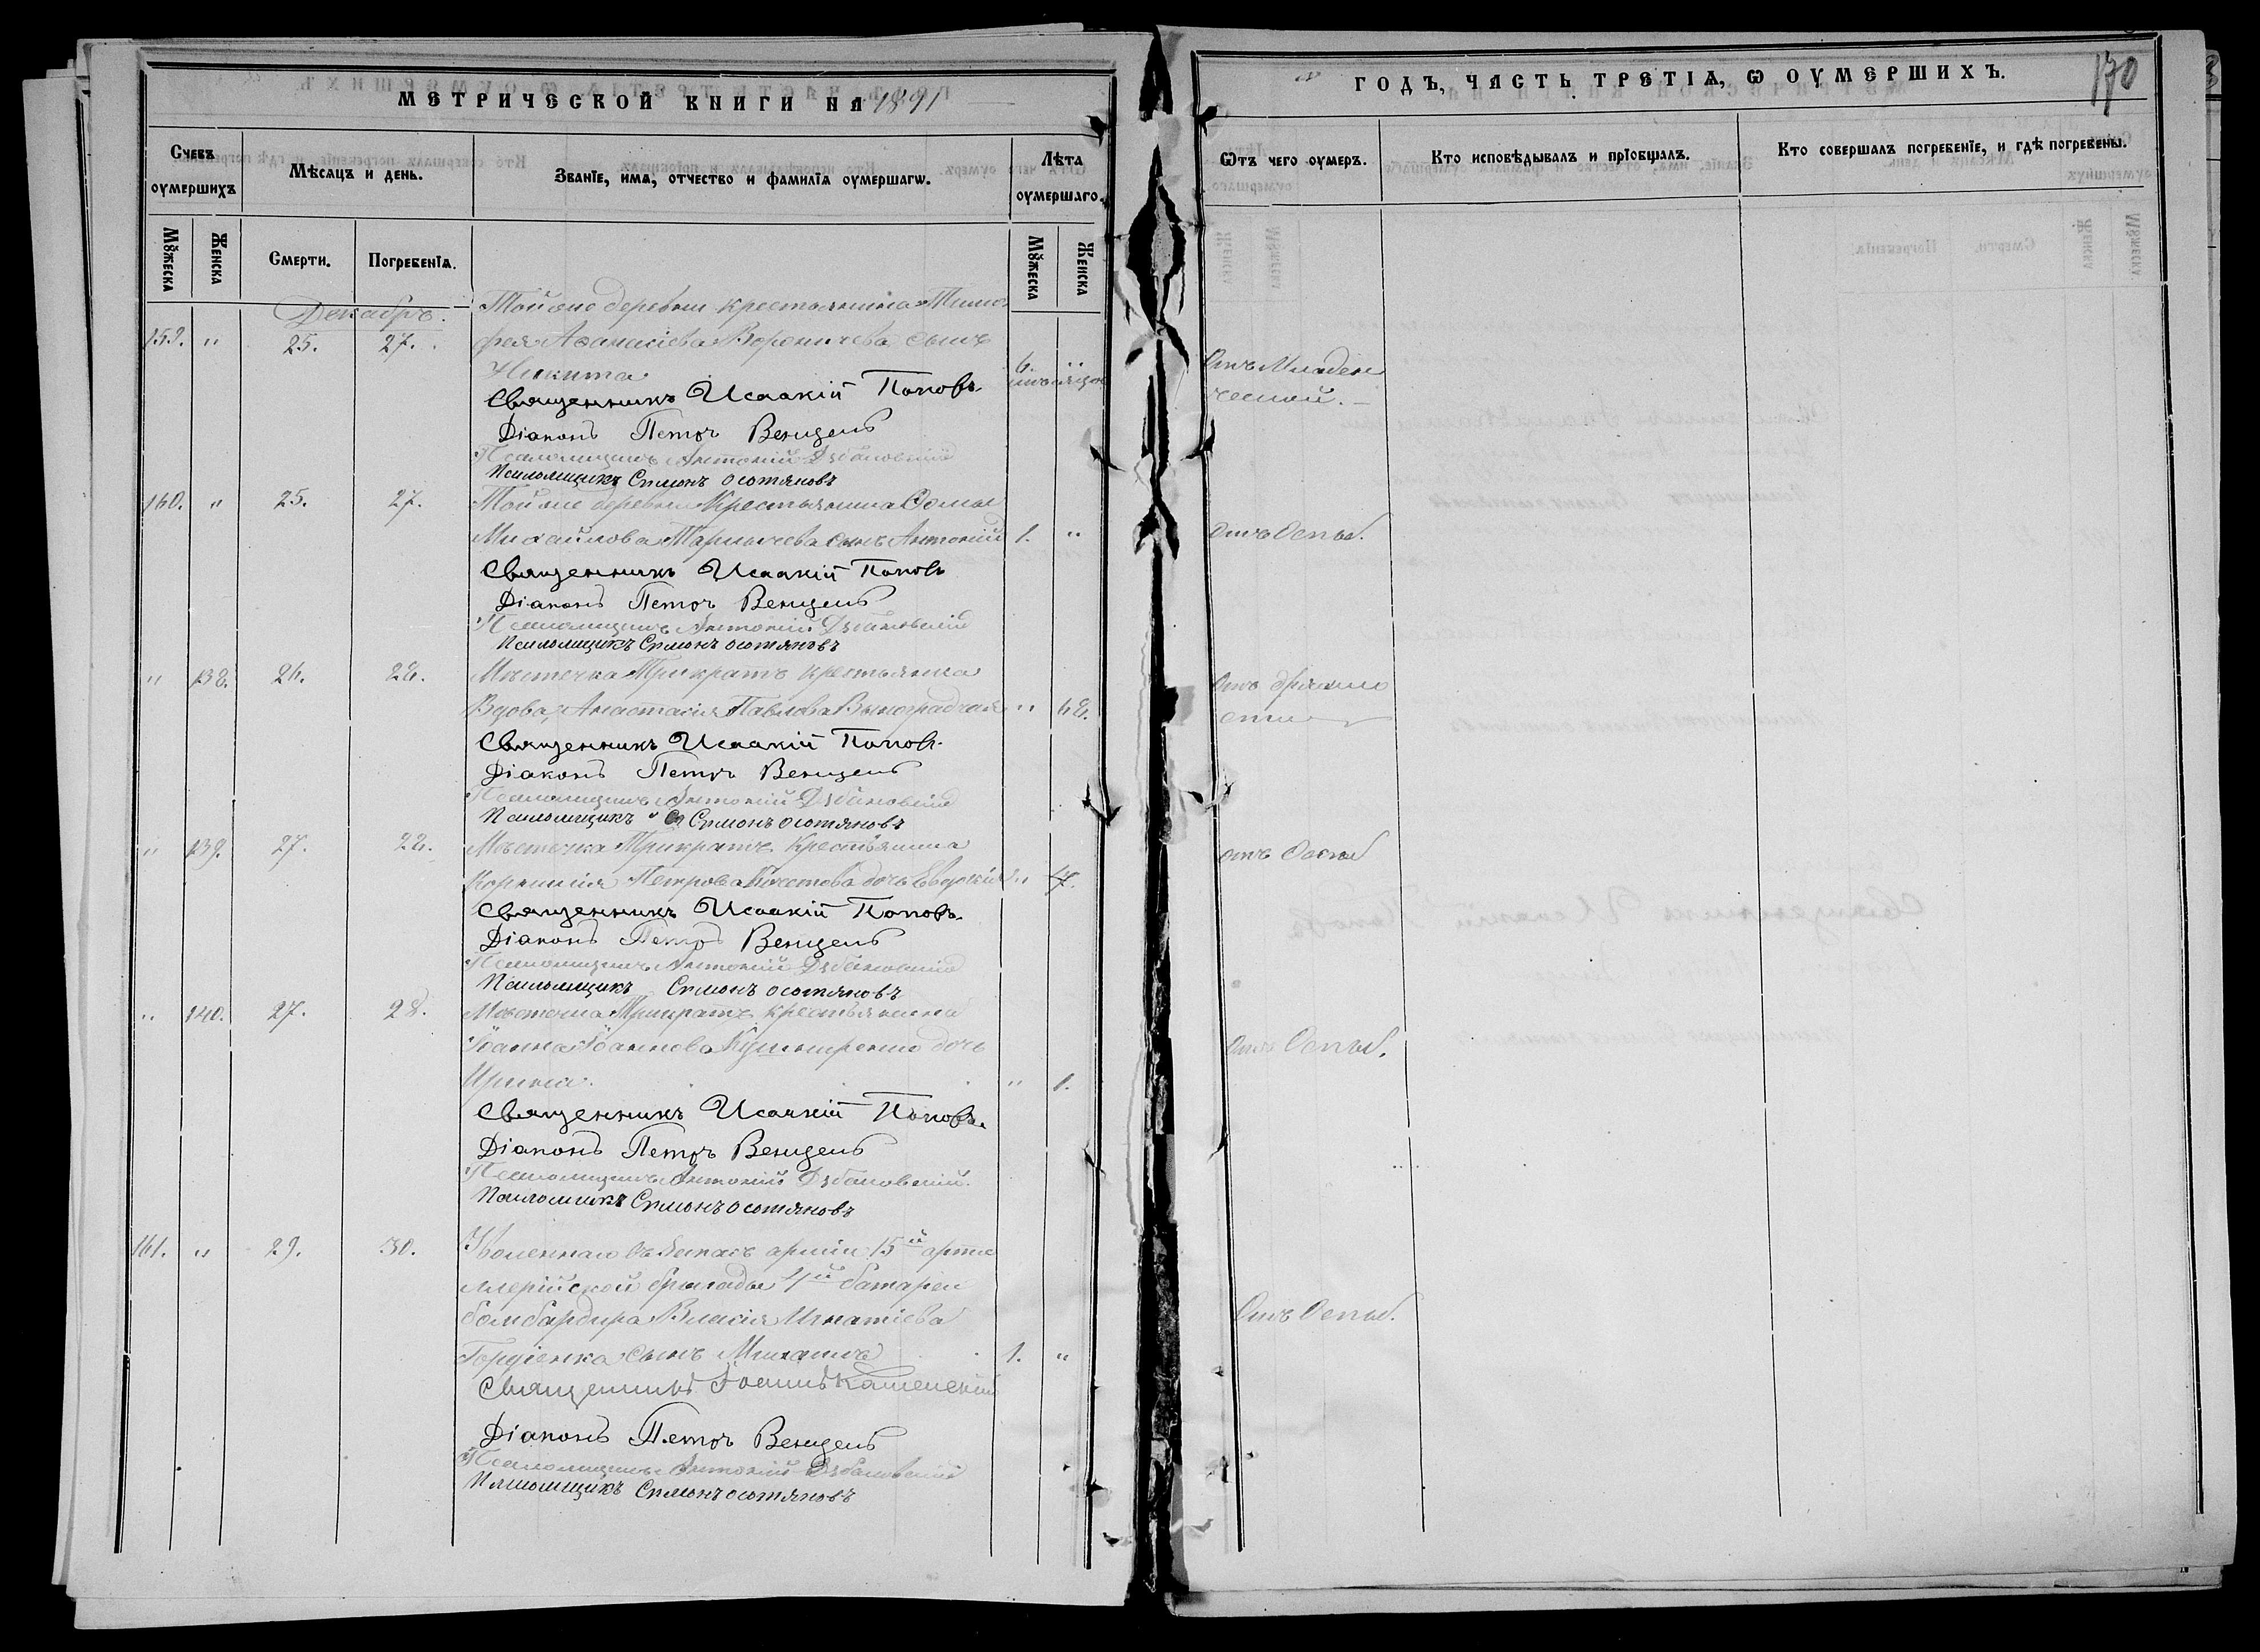 МЕТРИЧЕСКОЙ КНИГИ НА 1891
ГОДЪ, ЧАСТЬ ТРЕТІЯ, Ѡ ОУМЕРШИХЪ.
170
Счетъ оумершихъ
Мѣсяцъ и день.
Званіе, имя, отчество и фамилія оумершагѡ.
Лѣта оумершаго.
Ѿтъ чего оумеръ.
Кто исповѣдывалъ и пріобщалъ.
Кто совершалъ погребеніе, и гдѣ погребены.
Мужеска
Женска
Смерти.
Погребенія.
Мужеска
Женска
Декабрь.
Той же деревни крестьянина Тимо
159. " 25. 27. фея Аѳанасіева Вороничева сынъ
Никита 6. " мѣсяцов Отъ Младен
ческой.
Священникъ Исаакій Поповъ.
Діаконъ Петръ Венцель
Псаломщикъ Антоній
Псаломщикъ Симонъ Осотяновъ
160. " 25. 27. Той же деревни Крестьянина Ѳомы
Михайлова сынъ Антоній 1. " Отъ Оспы.
Священникъ Исаакій Поповъ
Діаконъ Петръ Венцель
Псаломщикъ Антоній
Псаломщикъ Симонъ Осотяновъ
" 138. 26. 28. Мѣстечка Трикратъ крестьянка
Вдова, Анастасія Павлова Виноградная " 68. Отъ дряхло
сти
Священникъ Исаакій Поповъ.
Діаконъ Петръ Венцель
Псаломщикъ Антоній
Псаломщикъ Симонъ Осотяновъ
" 139. 27. 28. Мѣстечка Трикратъ Крестьянина
Корнилія Петрова дочь Евдокія " 4. отъ Оспы
Священникъ Исаакій Поповъ.
Діаконъ Петръ Венцель
Псаломщикъ Антоній
Псаломщикъ Симонъ Осотяновъ
" 140. 27. 28. Мѣстечка Трикратъ крестьянина
Іоанна Іоаннова Кушниренко дочь
Ирина. " 1. Отъ Оспы.
Священникъ Исаакій Поповъ.
Діаконъ Петръ Венцель
Псаломщикъ Антоній
Псаломщикъ Симонъ Осотяновъ
161. " 29. 30. Уволеннаго въ Запасъ арміи 15й арти
ллерійской бригады 4й батареи
бомбардира Власія Игнатіева
Гордіенка сынъ Михаилъ 1. " Отъ Оспы.
Священникъ Іоаннъ Каменскій
Діаконъ Петръ Венцель
Псаломщикъ Антоній
Псаломщикъ Симонъ Осотяновъ